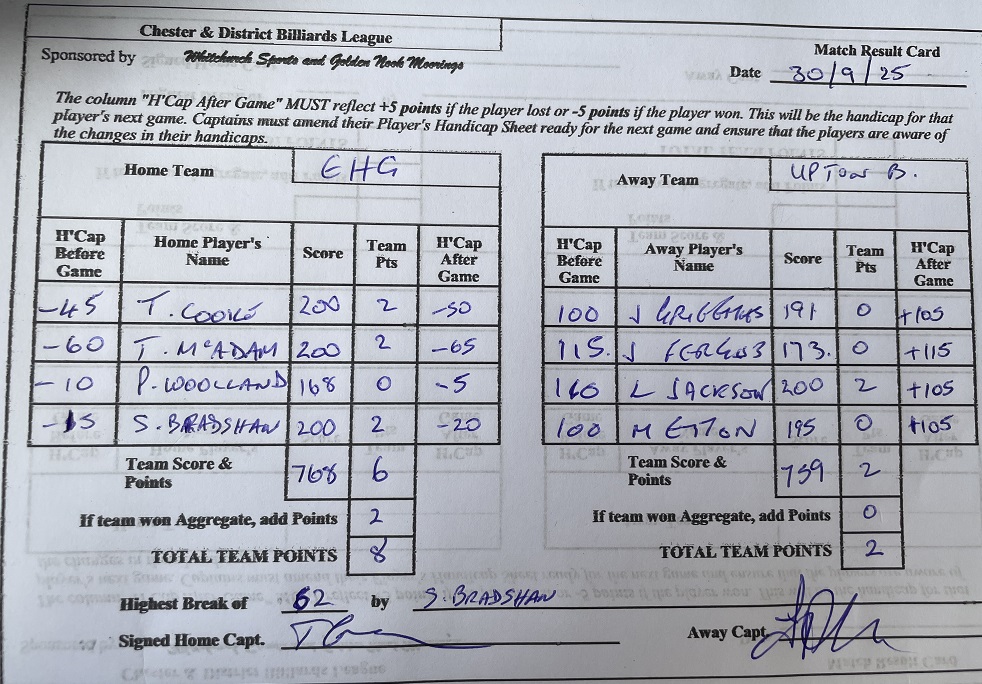 Chester & District Billiards League
Sponsored by Whitchurch Sports and Golden Nook Moorings
Match Result Card
Date 30/9/25
The column "H'Cap After Game" MUST reflect +5 points if the player lost or -5 points if the player won. This will be the handicap for that
player's next game. Captains must amend their Player's Handicap Sheet ready for the next game and ensure that the players are aware of
the changes in their handicaps.
Home Team EHG
H'Cap Before Game Home Player's Name Score Team Pts H'Cap After Game
-45 T. COOKE 200 2 -50
-60 T. McADAM 200 2 -65
-10 P. WOOLLAND 168 0 -5
-15 S. BRADSHAW 200 2 -20
Team Score & Points 768 6
If team won Aggregate, add Points 2
TOTAL TEAM POINTS 8
Away Team UPTON B.
H'Cap Before Game Away Player's Name Score Team Pts H'Cap After Game
100 J GRIFFITHS 191 0 +105
115. J 173. 0 +115
L JACKSON 200 2 +105
100 M ETTON 195 0 +105
Team Score & Points 759 2
If team won Aggregate, add Points 0
TOTAL TEAM POINTS 2
Highest Break of 62 by S. BRADSHAW
Signed Home Capt.
Away Capt.